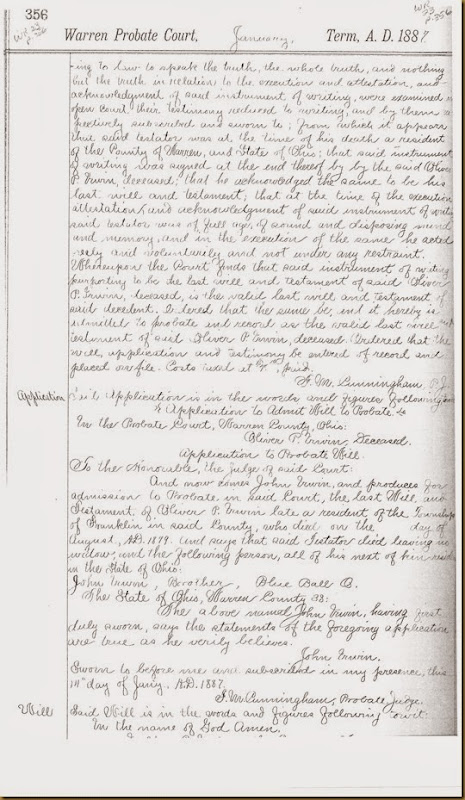 356
Warren Probate Court, January, Term, A. D. 1887
-ing to law to speak the truth, the whole truth, and nothing
but the truth in relation to the execution and attestation, and
acknowledgment of said instrument of writing, were examined in
open court, their testimony reduced to writing, and by them
spectively subscribed and sworn to; from which it appears
that said testator was at the time of his death a resident
of the County of Warren, and State of Ohio; that said instrument
of writing was signed at the end thereof by by the said Oliver
P. Irwin, deceased; that he acknowledged the same to be his
last will and testament; that at the time of the execution
attestation, and acknowledgment of said instrument of writ
said testator was of full age, of sound and disposing mind
and memory, and in the execution of the same he acted
reely and voluntarily and not under any restraint.
Whereupon the Court finds that said instrument of writing
purporting to be the last will and testament of said Oliver
P. Irwin, deceased, is the valid last will and testament of
said decedent. Ordered that the same be, and it hereby is
admitted to probate and record as the valid last will and
testament of said Oliver P. Irwin, deceased. Ordered that the
will, application and testimony be entered of record and
placed on file. Costs taxed at paid.
J. M. Cunningham, P. J.
Application
Said Application is in the words and figures following
Application to Admit Will to Probate.
In the Probate Court, Warren County, Ohio:
Oliver P. Irwin, Deceased.
Application to Probate Will.
To the Honorable, the Judge of said Court:
And now comes John Irwin, and produces for
admission to Probate in said Court, the last Will, and
Testament of Oliver P. Irwin late a resident of the Township
of Franklin in said County, who died on the day of
August, A.D. 1879. And says that said Testator died leaving no
widow, and the following person, all of his next of kin resid
in the State of Ohio:
John Irwin, Brother, Blue Ball O.
The State of Ohio, Warren County SS:
The above named John Irwin, having first
duly sworn, says the statements of the foregoing application
are true as he verily believes.
John Irwin.
Sworn to before me and subscribed in my presence, this
14th day of Jany. A.D. 1887.
J. M. Cunningham, Probate Judge.
Will
Said Will is in the words and figures following towit:
In the name of God Amen.